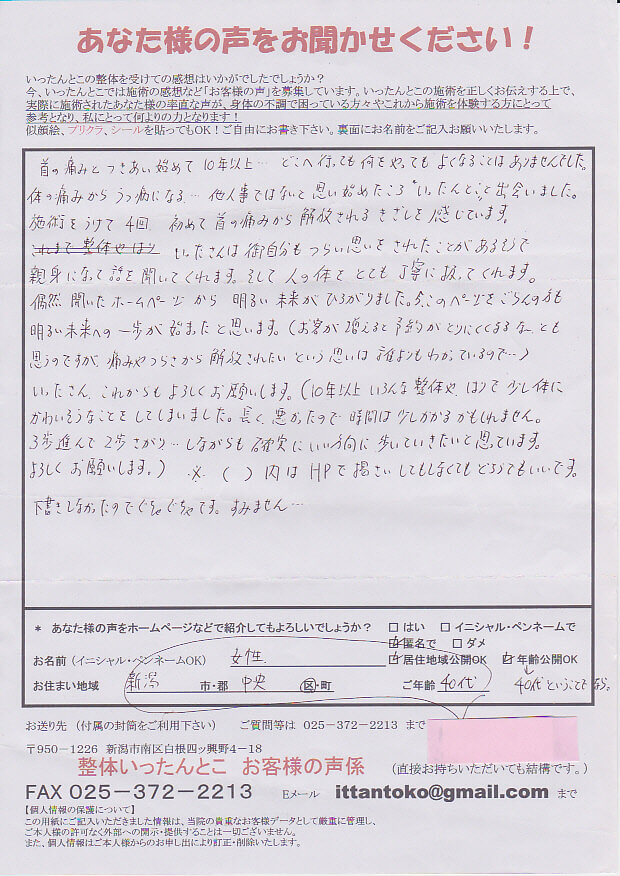 あなた様の声をお聞かせください！
いったんとこの整体を受けての感想はいかがでしたでしょうか？
今、いったんとこでは施術の感想など「お客様の声」を募集しています。いったんとこの施術を正しくお伝えする上で、
実際に施術されたあなた様の率直な声が、身体の不調で困っている方々やこれから施術を体験する方にとって
参考となり、私にとって何よりの力となります！
似顔絵、プリクラ、シールを貼ってもOK！ご自由にお書き下さい。裏面にお名前をご記入お願いいたします。
首の痛みとつきあい始めて10年以上… どこへ行っても何をやってもよくなることはありませんでした。
体の痛みからうつ病になる… 他人事ではないと思い始めたころ"いったんとこ"と出会いました。
施術をうけて4回 初めて首の痛みから解放されるきざしを感じています。
これまで整体やはり いったさんは御自分もつらい思いをされたことがあるそうで
親身になって話を聞いてくれます。そして人の体をとても丁寧に扱ってくれます。
偶然開いたホームページから明るい未来がひろがりました。今このページをごらんの方も
明るい未来への一歩が始まったと思います。(お客が増えると予約がとりにくくなるなーとも
思うのですが、痛みやつらさから解放されたいという思いは誰よりもわかっているので…)
いったさん、これからもよろしくお願いします。(10年以上いろんな整体や、はりで少し体に
かわいそうなことをしてしまいました。長く悪かったので時間は少しかかるかもしれません。
3歩進んで2歩さがり…しながらも確実にいい方向に歩いていきたいと思っています。
よろしくお願いします。) ※( )内はHPで掲さいしてもしなくてもどちらでもいいです。
下書きしなかったのでぐちゃぐちゃです。すみません…
＊ あなた様の声をホームページなどで紹介してもよろしいでしょうか？ □はい □イニシャル・ペンネームで
☑匿名で □ダメ
お名前（イニシャル・ペンネームOK） 女性 ☑居住地域公開OK ☑年齢公開OK
お住まい地域 新潟 市・郡 中央 区・町 ご年齢 40代 40代ということなら。
お送り先（付属の封筒をご利用下さい） ご質問等は 025－372－2213 まで
〒950－1226 新潟市南区白根四ッ興野4－18
整体いったんとこ お客様の声係 （直接お持ちいただいても結構です。）
FAX 025－372－2213 Eメール ittantoko@gmail.com まで
【個人情報の保護について】
この用紙にご記入いただきました情報は、当院の貴重なお客様データとして厳重に管理し、
ご本人様の許可なく外部への開示・提供することは一切ございません。
また、個人情報はご本人様からのお申し出により訂正・削除いたします。